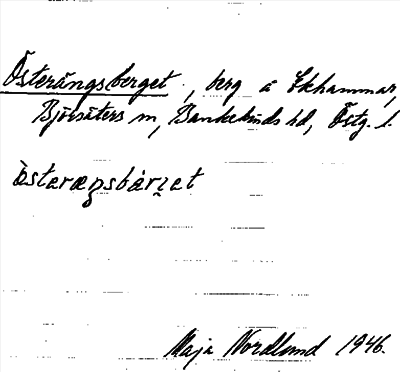 Österängsberget, berg å Ekhammar,
Björsäters sn, Bankekinds hd, Östg. l.
òsteræŋsbàrjet
Maja Nordlund 1946.